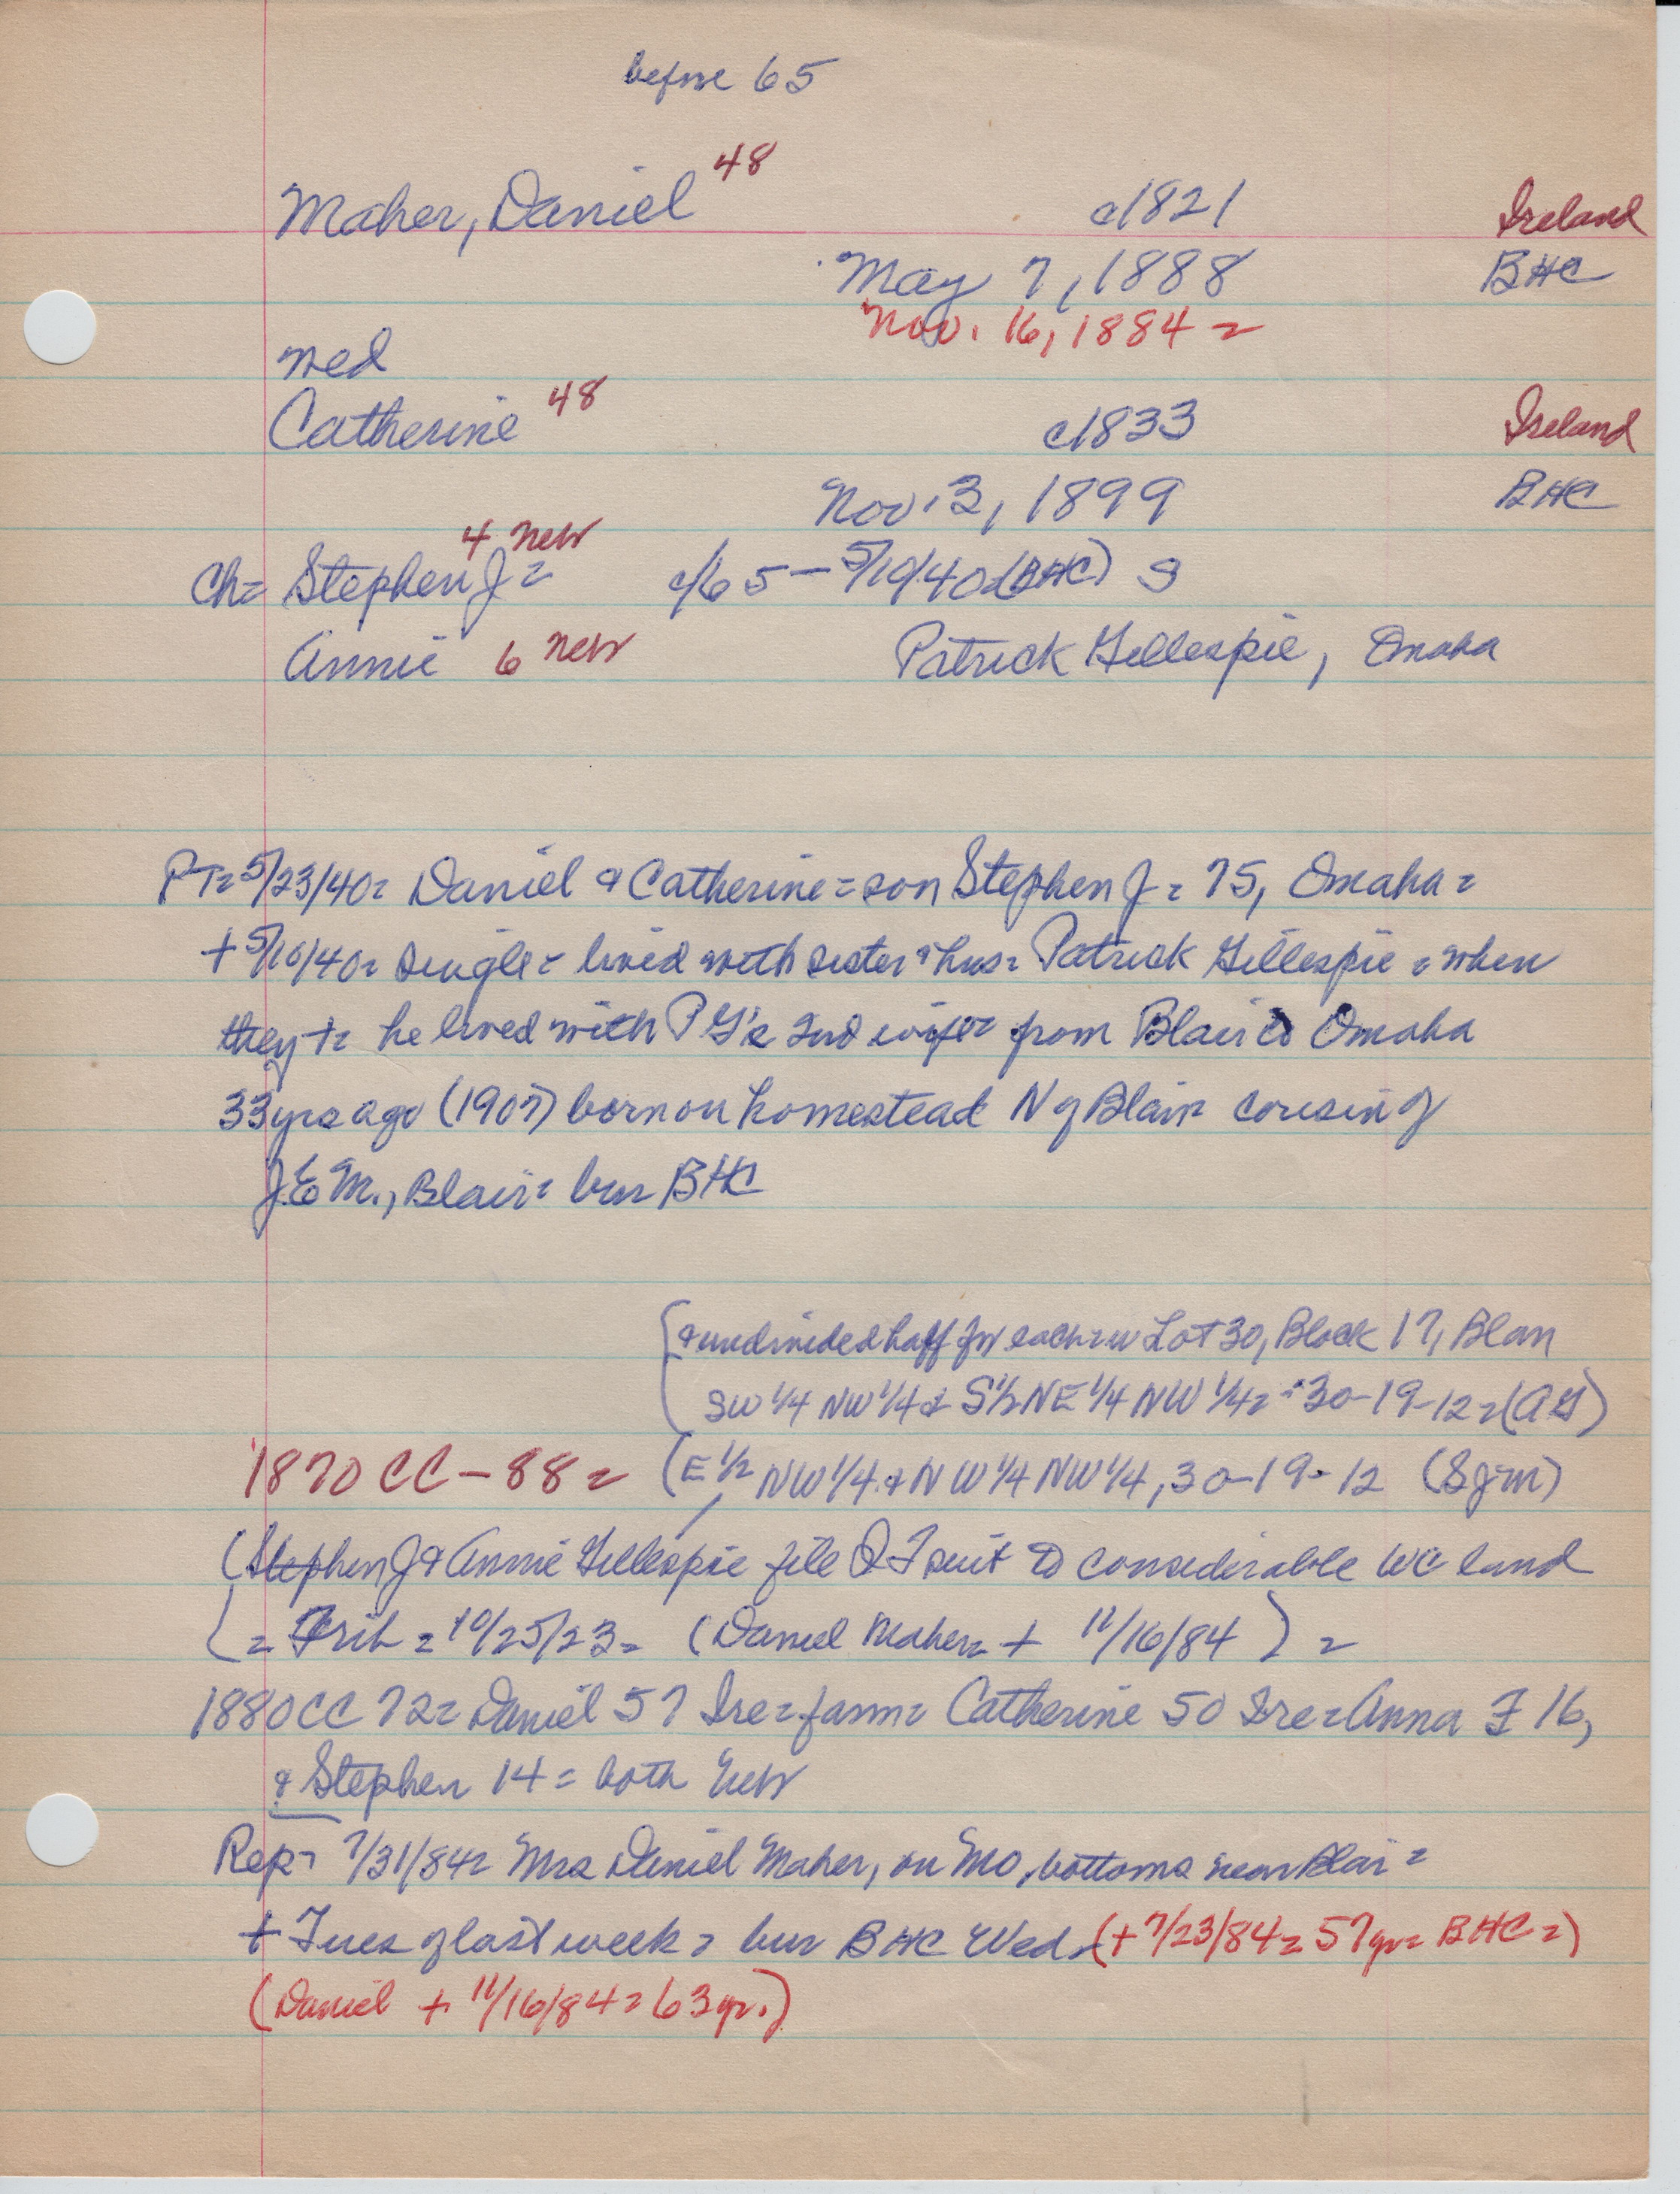 before 65
Maher, Daniel 48 c1821 Ireland
May 7, 1888 BHC
Nov. 16, 1884 =
med
Catherine 48 c1833 Ireland
Nov. 3, 1899 BHC
4 Neb
Ch= Stephen J = c/65 - 5/10/40 (BHC) S
Annie 6 Neb Patrick Gillespie, Omaha
PT= 5/23/40= Daniel & Catherine = son Stephen J = 75, Omaha =
+ 5/10/40= single = lived with sister & hus= Patrick Gillespie = when
they += he lived with P G's 2nd wife= from Blair to Omaha
33 yrs ago (1907) born on homestead N of Blair cousin of
J.E M., Blair= bur BHC
& undivided half for each in Lot 30, Block 17, Blair
SW 1/4 NW 1/4 & S 1/2 NE 1/4 NW 1/4 = 30-19-12 = (AG)
1870 CC - 88 = (E 1/2 NW 1/4 & NW 1/4 NW 1/4, 30-19-12 (SJM)
(Stephen J & Annie Gillespie file QT suit to considerable WC land
= Trib = 10/25/23= (Daniel Maher= + 11/16/84) =
1880 CC 72= Daniel 57 Ire = farm= Catherine 50 Ire = Anna F 16,
& Stephen 14 = both Neb
Rep= 7/31/84= Mrs Daniel Maher, on MO. bottoms near Blair =
+ Tues of last week = bur BHC Wed= (+ 7/23/84= 57 yr= BHC =)
(Daniel + 11/16/84 = 63 yr.)